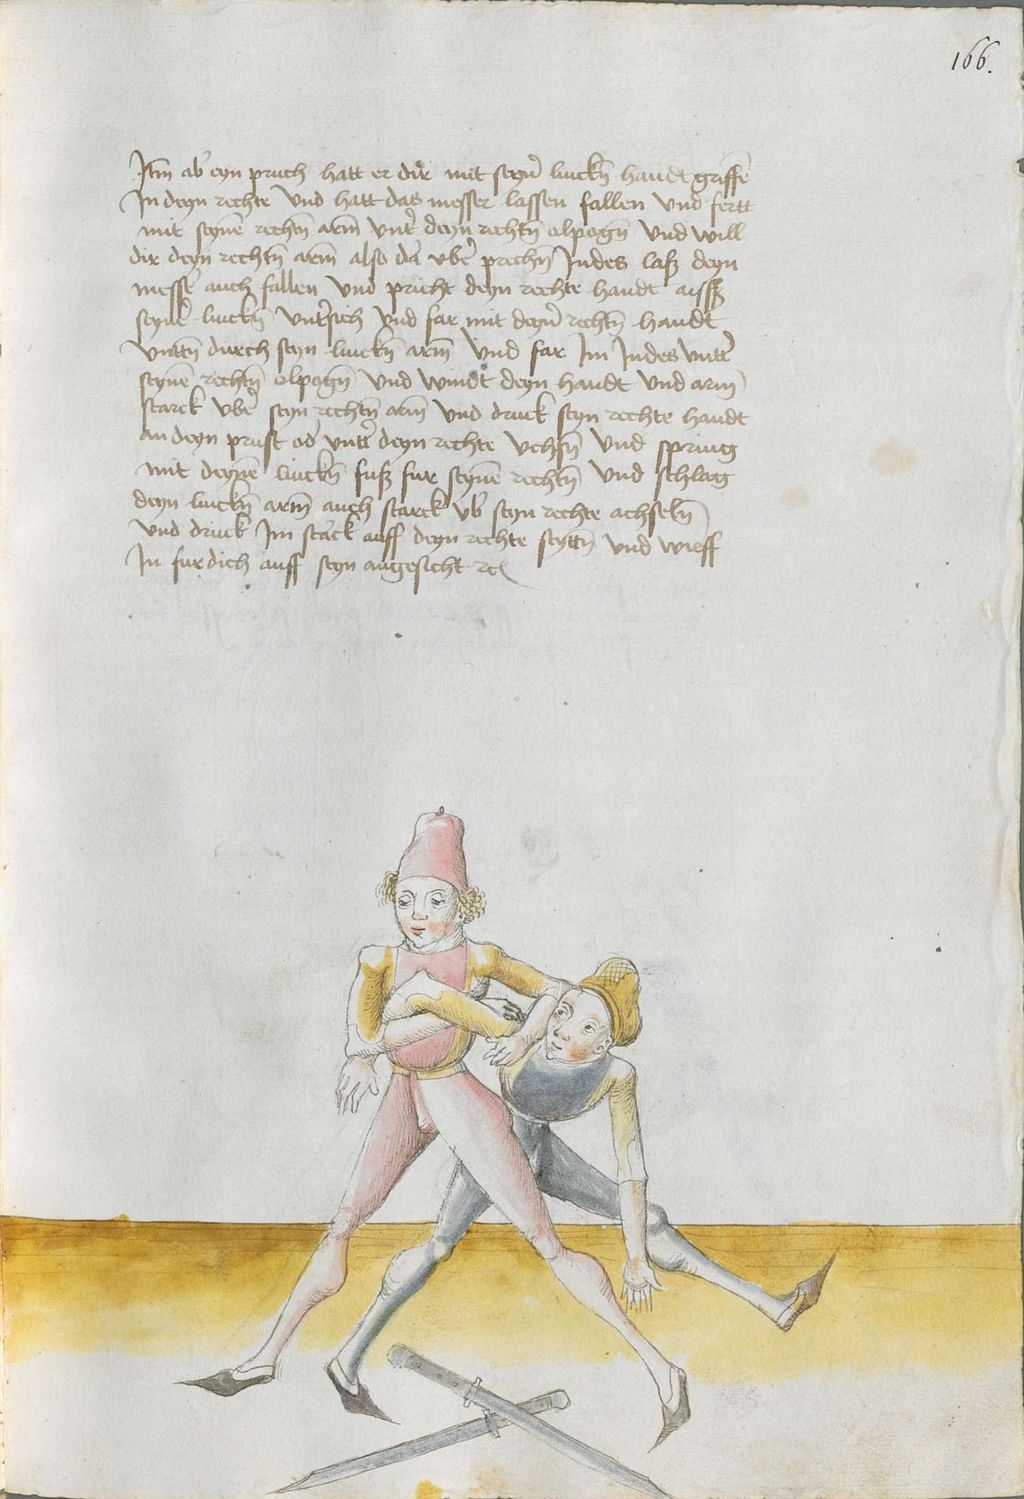 166.
Itm̄ ab' eyn pruch hatt er dir mit seyn' linckn̄ handt griffē
In deyn rechte Vnd hatt das messer lassen fallen Vnd fertt
mit seynē rechtn̄ arm̄ vnt' deyn rechtn̄ elpogn̄ Vnd will
dir deyn rechtn̄ arm̄ also da vbe' prechn̄ Indes laß deyn
messe' auch fallen Vnd pricht deyn rechte handt auß
seyne' linckn̄ vnt'sich Vnd far mit deyn' rechtn̄ handt
vnttn̄ durch seyn linckn̄ arm̄ Vnd far Im Indes vntt'
seynē rechtn̄ elpogn̄ Vnd windt deyn handt Vnd arm
starck vbe' seyn rechtn̄ arm̄ Vnd druck seyn rechte handt
an deyn prust od' vntt' deyn rechte Vchsn̄ Vnd spring
mit deynē linckn̄ fuß fur seynē rechtn̄ Vnd schlag
deyn linckn̄ arm̄ auch starck vb' seyn rechte achseln̄
Vnd druck Im starck auff deyn rechte seyttn̄ Vnd wirff
In fur dich auff seyn angesicht rc